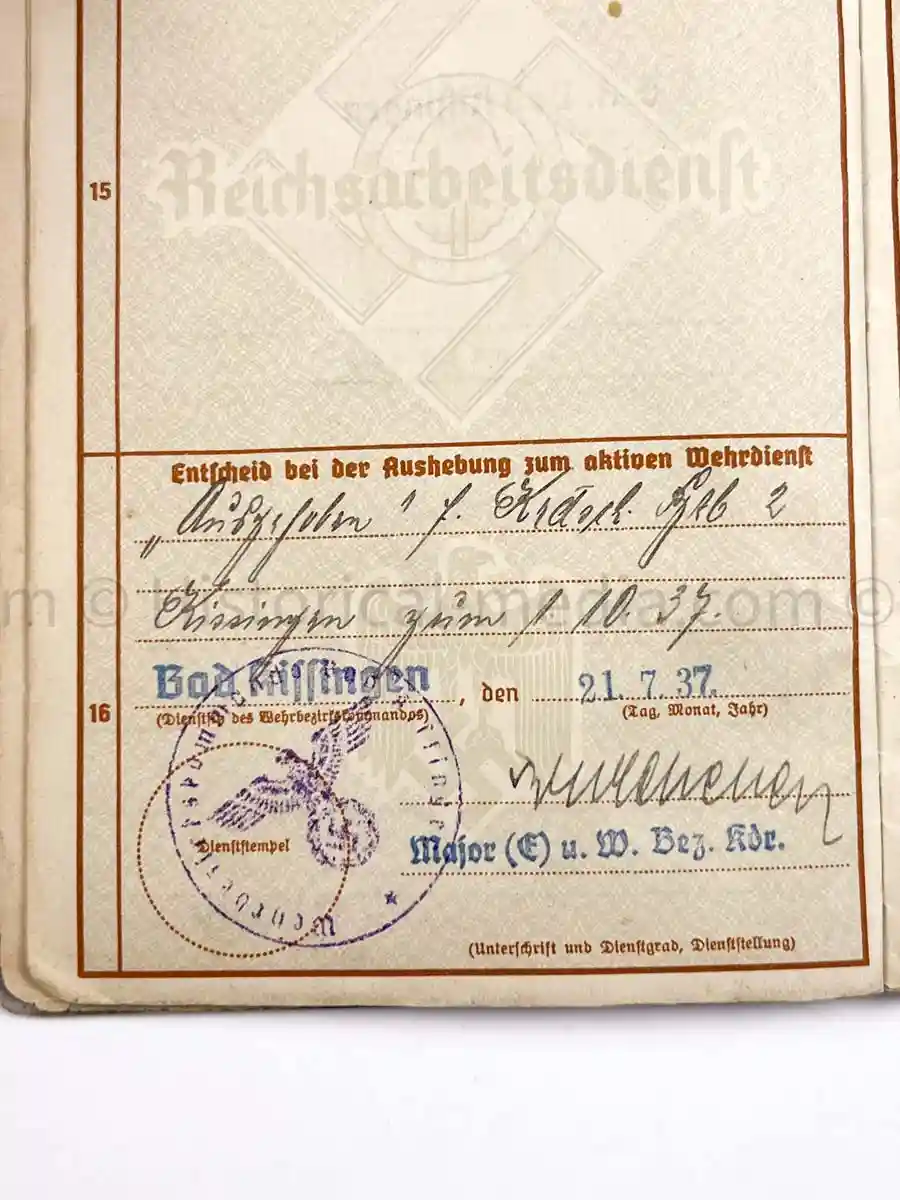 15
Reichsarbeitsdienst
Entscheid bei der Aushebung zum aktiven Wehrdienst
„Ausgehoben" f. 2
Kissingen zum 1 10. 37.
© historical-media.com ©
Bad Kissingen, den 21. 7. 37.
16
(Dienstsitz des Wehrbezirkskommandos)
(Tag, Monat, Jahr)
Dienststempel
Major (E) u. W. Bez. Kdr.
(Unterschrift und Dienstgrad, Dienststellung)